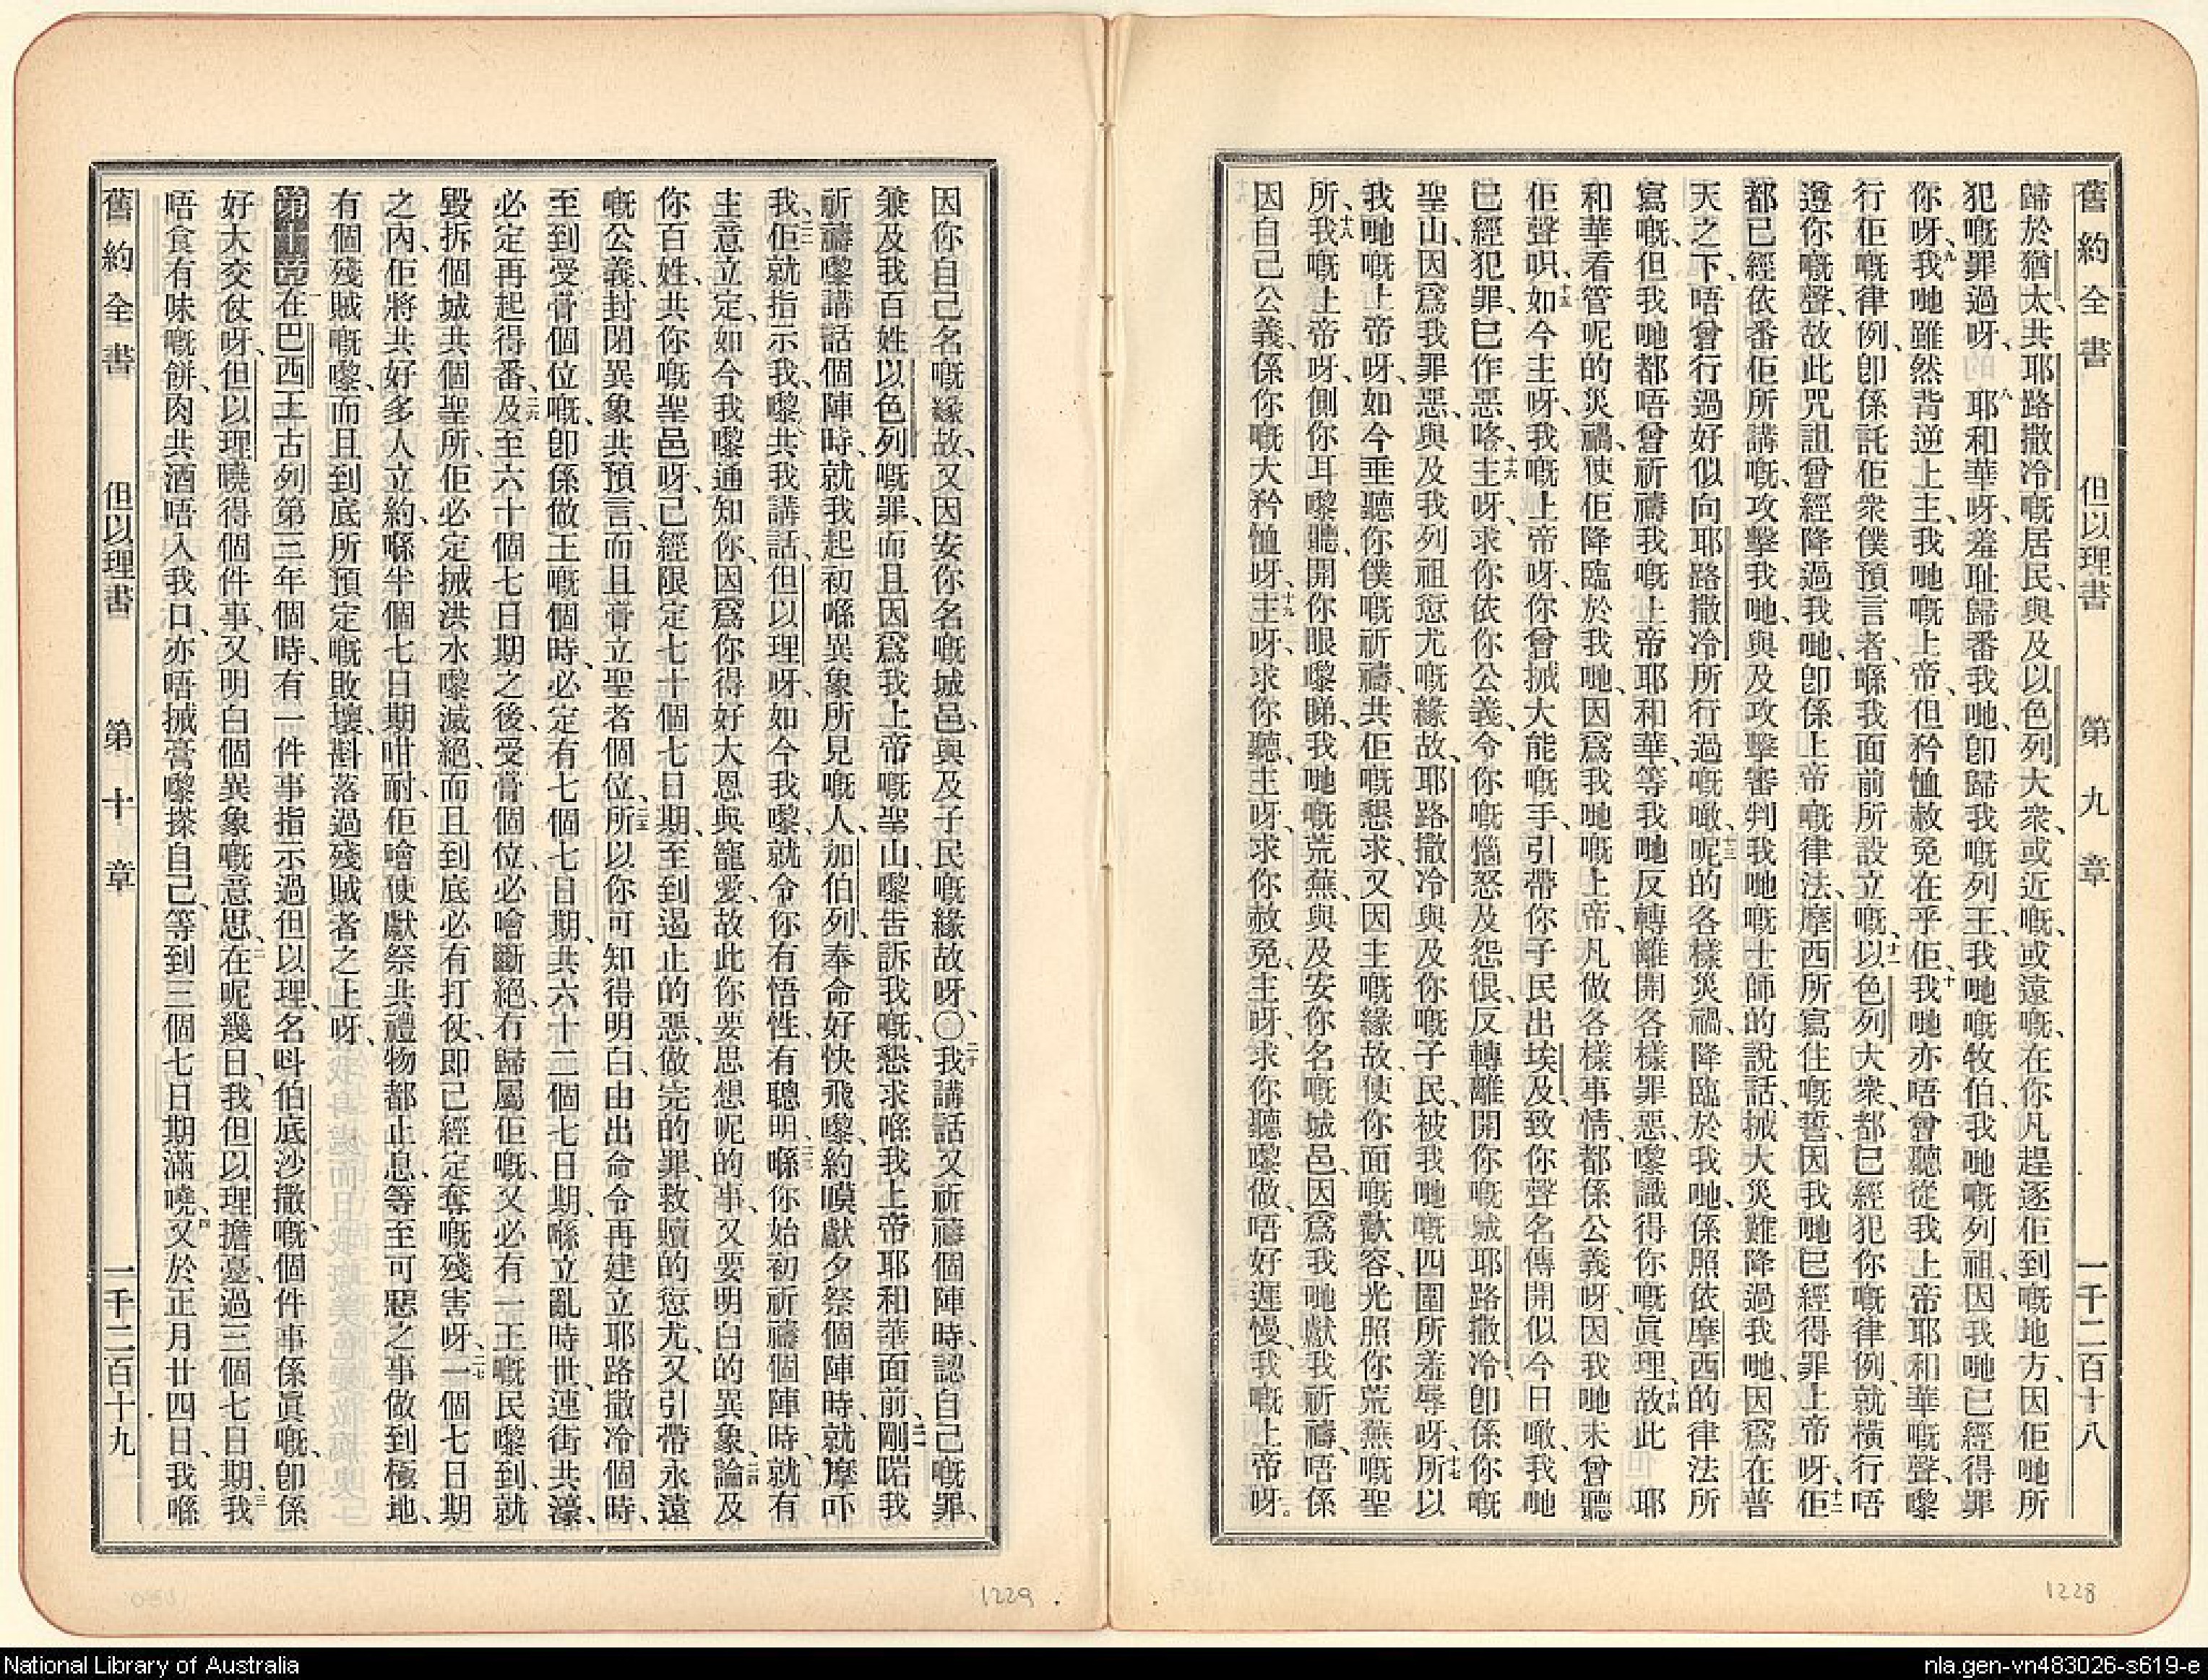 舊約全書 但以理書 第九章 一千二百十八
歸於猶太、共耶路撒冷嘅居民、與及以色列大衆、或近嘅、或遠嘅、在你凡趕逐佢到嘅地方、因佢哋所
犯嘅罪過呀、八耶和華呀、羞耻歸番我哋、卽歸我嘅列王、我哋嘅牧伯、我哋嘅列祖、因我哋已經得罪
你呀、九我哋雖然背逆上主、我哋嘅上帝、但矜恤赦免在乎佢、十我哋亦唔曾聽從我上帝耶和華嘅聲、嚟
行佢嘅律例、卽係託佢衆僕預言者、喺我面前所設立嘅、十一以色列大衆、都已經犯你嘅律例、就橫行唔
遵你嘅聲、故此咒詛曾經降過我哋、卽係上帝嘅律法、摩西所寫住嘅誓、因我哋已經得罪上帝呀、十二佢
都已經依番佢所講嘅、攻擊我哋、與及攻擊審判我哋嘅士師的說話、搣大災難降過我哋、因爲在普
天之下、唔曾行過好似向耶路撒冷所行過嘅噉、十三呢的各樣災禍、降臨於我哋、係照依摩西的律法所
寫嘅、但我哋都唔曾祈禱我嘅上帝耶和華、等我哋反轉離開各樣罪惡、嚟識得你嘅眞理、十四故此 耶
和華看管呢的災禍、使佢降臨於我哋、因爲我哋嘅上帝、凡做各樣事情、都係公義呀、因我哋未曾聽
佢聲唄、十五如今主呀、我嘅上帝呀、你曾搣大能嘅手、引帶你子民出埃及、致你聲名傳開似今日噉、我哋
已經犯罪、已作惡咯、十六主呀、求你依你公義、令你嘅惱怒及怨恨、反轉離開你嘅城耶路撒冷、卽係你嘅
聖山、因爲我罪惡、與及我列祖愆尤嘅緣故、耶路撒冷與及你嘅子民、被我哋嘅四圍所羞辱呀、十七所以
我哋嘅上帝呀、如今垂聽你僕嘅祈禱、共佢嘅懇求、又因主嘅緣故、使你面嘅歡容、光照你荒蕪嘅聖
所、十八我嘅上帝呀、側你耳嚟聽、開你眼嚟睇、我哋嘅荒蕪、與及安你名嘅城邑、因爲我哋獻我祈禱、唔係
因自己公義、係你嘅大矜恤呀、十九主呀、求你聽、主呀、求你赦免、主呀、求你聽嚟做、唔好遲慢、我嘅上帝呀。
1228
因你自己名嘅緣故、又因安你名嘅城邑、與及子民嘅緣故呀、〇二十我講話又祈禱個陣時、認自己嘅罪、
兼及我百姓以色列嘅罪、而且因爲我上帝嘅聖山、嚟告訴我嘅懇求喺我上帝耶和華面前、二一剛啱我
祈禱嚟講話個陣時、就我起初喺異象所見嘅人、加伯列、奉命好快飛嚟、約嗼獻夕祭個陣時、就摩吓
我、二二佢就指示我、嚟共我講話、但以理呀、如今我嚟、就令你有悟性、有聰明、二三喺你始初祈禱個陣時、就有
主意立定、如今我嚟通知你、因爲你得好大恩與寵愛、故此你要思想呢的事、又要明白的異象、二四論及
你百姓、共你嘅聖邑呀、已經限定七十個七日期、至到遏止的惡、做完的罪、救贖的愆尤、又引帶永遠
嘅公義、封閉異象共預言、而且膏立聖者個位、二五所以你可知得明白、由出命令再建立耶路撒冷個時、
至到受膏個位嘅、卽係做王嘅個時、必定有七個七日期、共六十二個七日期、喺立亂時世、連街共濠、
必定再起得番、二六及至六十個七日期之後、受膏個位、必噲斷絕、冇歸屬佢嘅、又必有一王嘅民嚟到、就
毀拆個城共個聖所、佢必定搣洪水嚟滅絕、而且到底必有打仗、卽已經定奪嘅殘害呀、二七一個七日期
之內、佢將共好多人立約、喺半個七日期咁耐、佢噲使獻祭共禮物都止息、等至可惡之事做到極地、
有個殘賊嘅嚟、而且到底所預定嘅敗壞、斟落過殘賊者之上呀、
第十章 一在巴西王古列第三年個時、有一件事指示過但以理、名呌伯底沙撒嘅、個件事係眞嘅、卽係
好大交仗呀、但以理曉得個件事、又明白個異象嘅意思、二在呢幾日、我但以理擔憂過三個七日期、三我
唔食有味嘅餅、肉共酒唔入我口、亦唔搣膏嚟搽自己、等到三個七日期滿曉、四又於正月廿四日、我喺
舊約全書 但以理書 第十章 一千二百十九
1229
National Library of Australia
nla.gen-vn483026-s619-e